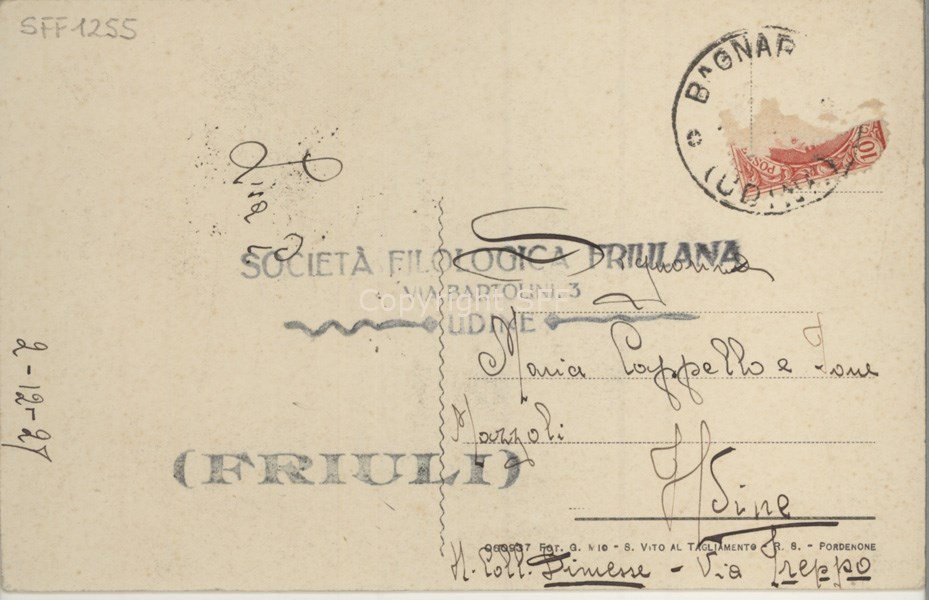 SFF1255
BAGNAR
(UDINE)
10
POST
Lisa
SOCIETÀ FILOLOGICA FRIULANA
VIA BARTOLINI, 3
UDINE
Copyright SFF
Signorina
Maria Cappello e
Udine
2-12-27
(FRIULI)
Fot. G. - S. Vito al Tagliamento - R. S. - Pordenone
Coll. Dimesse - Via Treppo